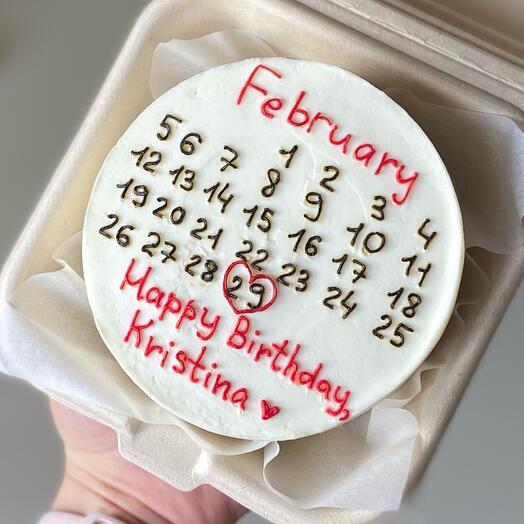 February
1 2 3 4
5 6 7 8 9 10 11
12 13 14 15 16 17 18
19 20 21 22 23 24 25
26 27 28 29
Happy Birthday,
Kristina